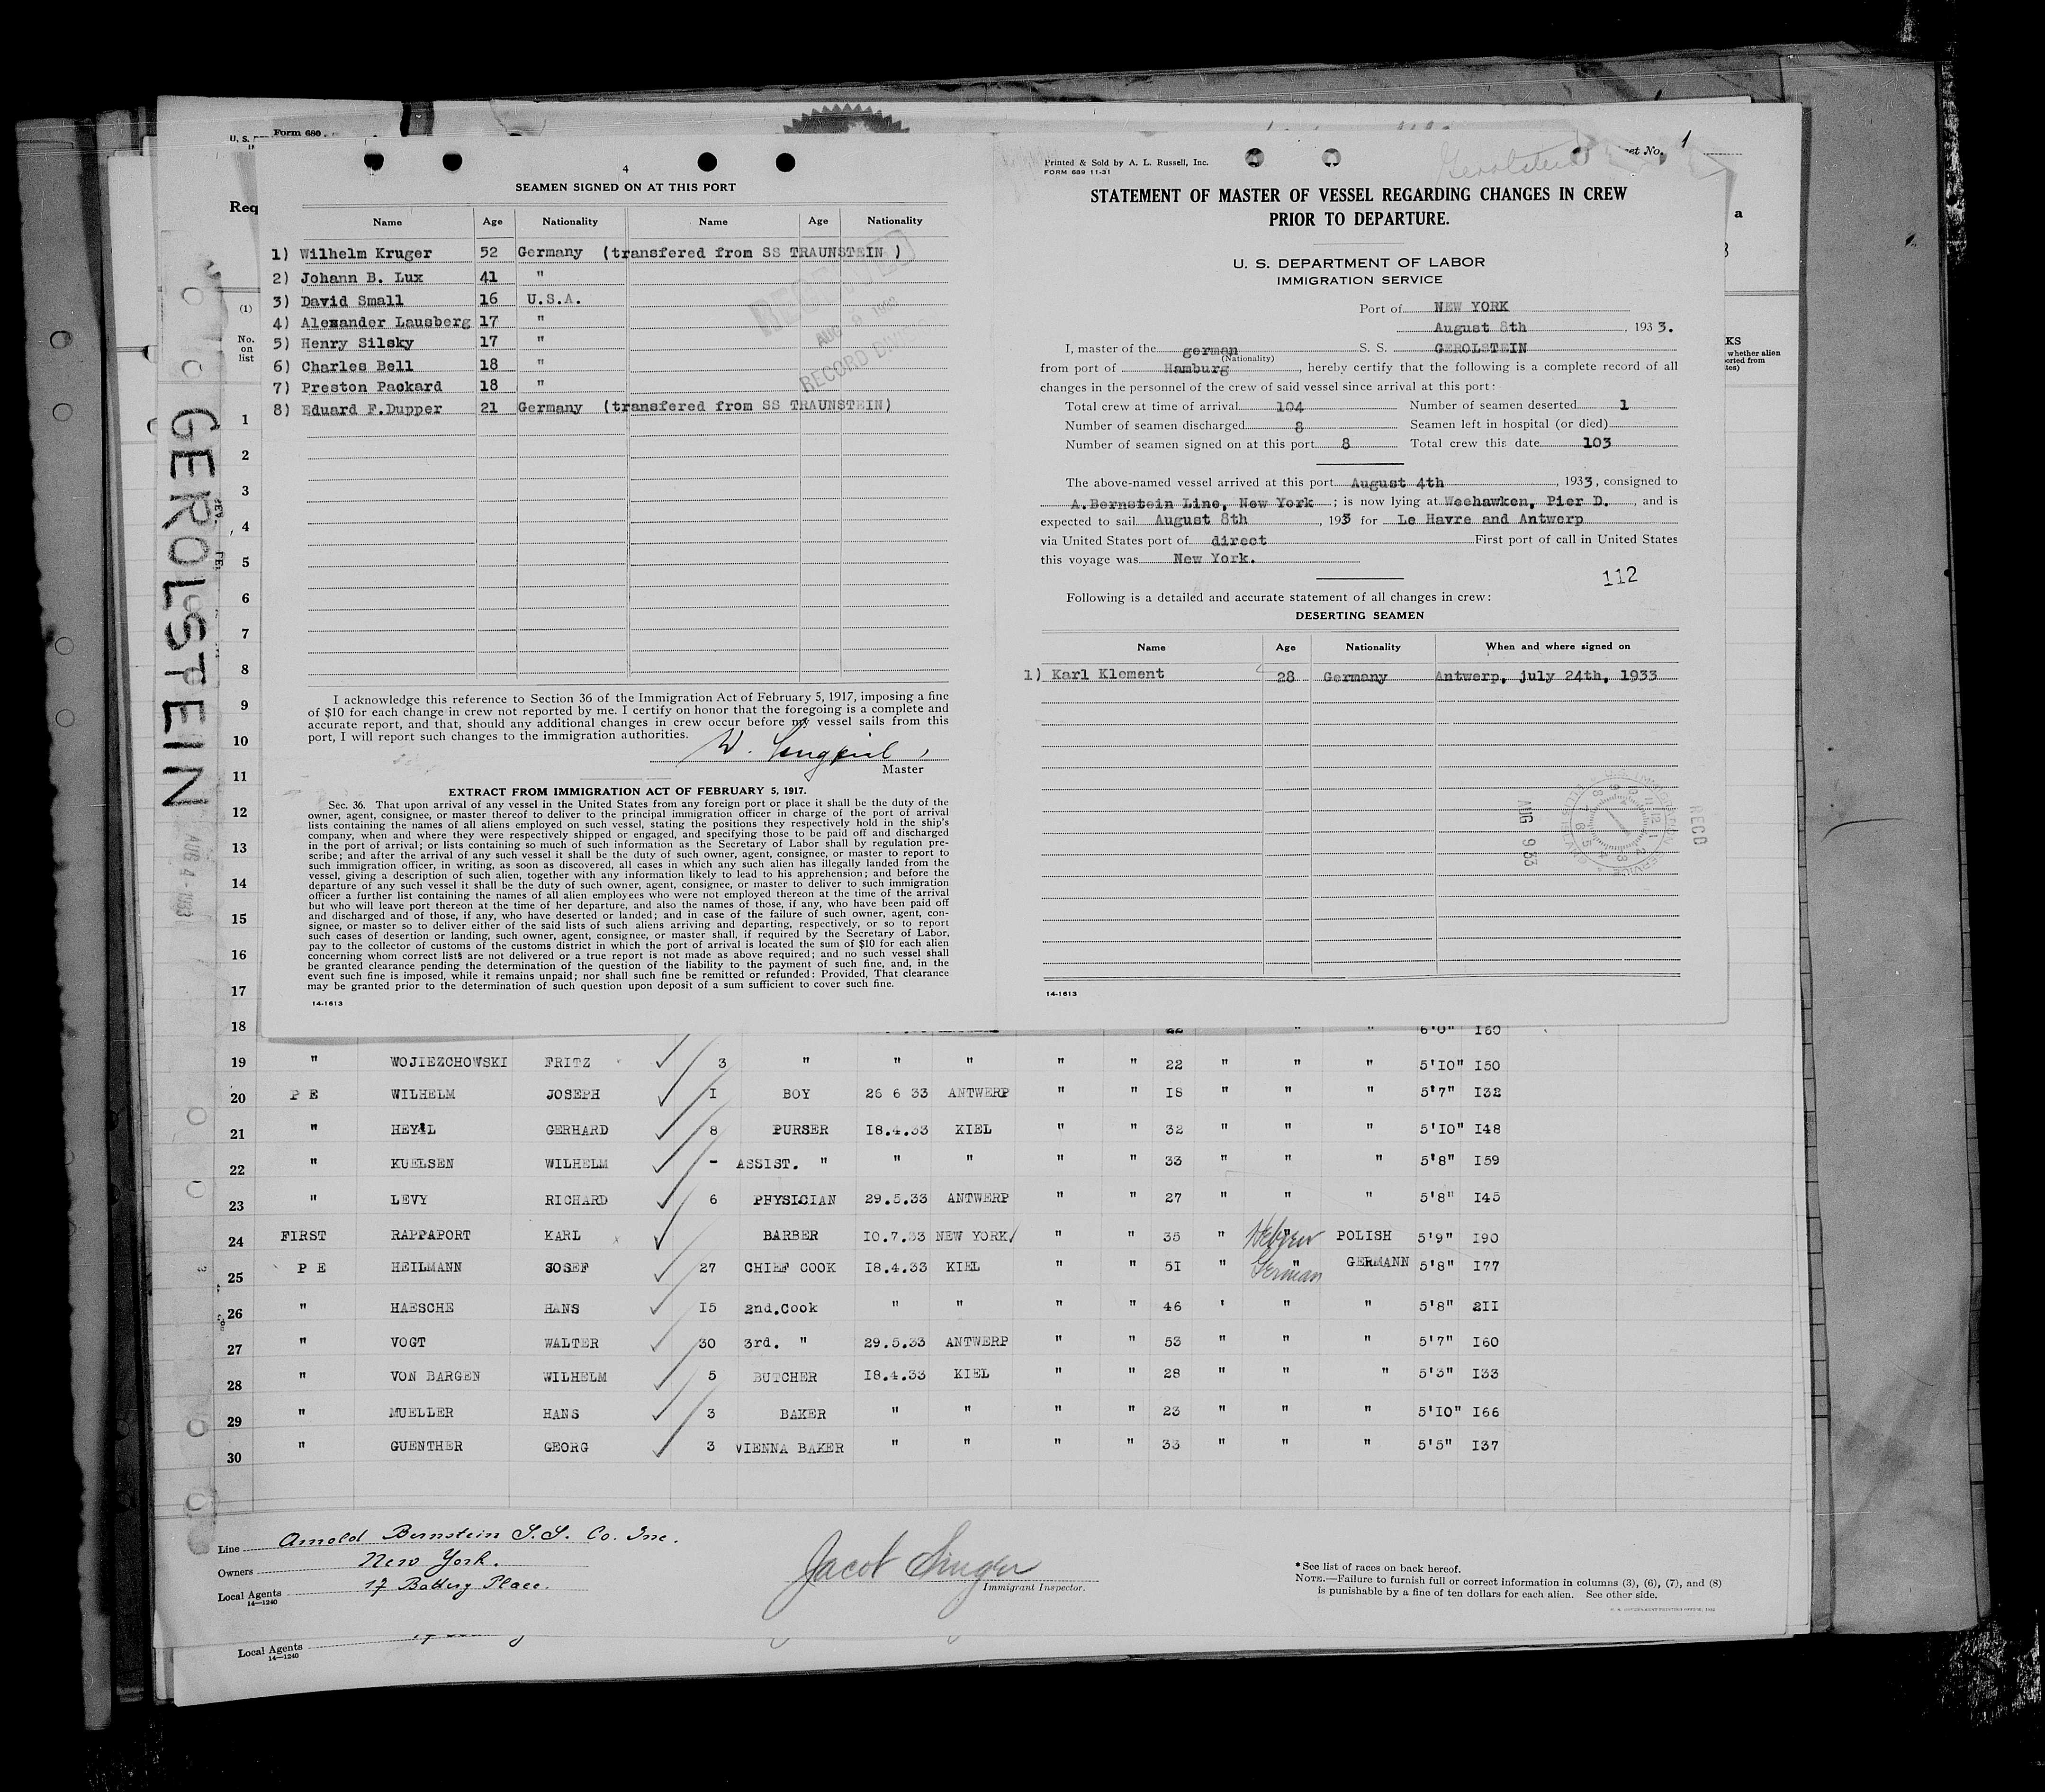 Form 680
U. S.
Req
(1)
No.
on
list
GEROLSTEIN
AUG 4 - 1933
4
SEAMEN SIGNED ON AT THIS PORT
Name Age Nationality Name Age Nationality
1) Wilhelm Kruger 52 Germany (transfered from SS TRAUNSTEIN )
2) Johann B. Lux 41 "
3) David Small 16 U.S.A.
4) Alexander Lausberg 17 "
5) Henry Silsky 17 "
6) Charles Bell 18 "
7) Preston Packard 18 "
8) Eduard F.Dupper 21 Germany (transfered from SS TRAUNSTEIN)
RECEIVED
AUG 9 1933
RECORD DIVISION
I acknowledge this reference to Section 36 of the Immigration Act of February 5, 1917, imposing a fine
of $10 for each change in crew not reported by me. I certify on honor that the foregoing is a complete and
accurate report, and that, should any additional changes in crew occur before my vessel sails from this
port, I will report such changes to the immigration authorities.
W.
Master
EXTRACT FROM IMMIGRATION ACT OF FEBRUARY 5, 1917.
Sec. 36. That upon arrival of any vessel in the United States from any foreign port or place it shall be the duty of the
owner, agent, consignee, or master thereof to deliver to the principal immigration officer in charge of the port of arrival
lists containing the names of all aliens employed on such vessel, stating the positions they respectively hold in the ship's
company, when and where they were respectively shipped or engaged, and specifying those to be paid off and discharged
in the port of arrival; or lists containing so much of such information as the Secretary of Labor shall by regulation pre-
scribe; and after the arrival of any such vessel it shall be the duty of such owner, agent, consignee, or master to report to
such immigration officer, in writing, as soon as discovered, all cases in which any such alien has illegally landed from the
vessel, giving a description of such alien, together with any information likely to lead to his apprehension; and before the
departure of any such vessel it shall be the duty of such owner, agent, consignee, or master to deliver to such immigration
officer a further list containing the names of all alien employees who were not employed thereon at the time of the arrival
but who will leave port thereon at the time of her departure, and also the names of those, if any, who have been paid off
and discharged and of those, if any, who have deserted or landed; and in case of the failure of such owner, agent, con-
signee, or master so to deliver either of the said lists of such aliens arriving and departing, respectively, or so to report
such cases of desertion or landing, such owner, agent, consignee, or master shall, if required by the Secretary of Labor,
pay to the collector of customs of the customs district in which the port of arrival is located the sum of $10 for each alien
concerning whom correct lists are not delivered or a true report is not made as above required; and no such vessel shall
be granted clearance pending the determination of the question of the liability to the payment of such fine, and, in the
event such fine is imposed, while it remains unpaid; nor shall such fine be remitted or refunded: Provided, That clearance
may be granted prior to the determination of such question upon deposit of a sum sufficient to cover such fine.
14-1613
Printed & Sold by A. L. Russell, Inc.
FORM 689 11-31
Gerolstein
et No. 1
STATEMENT OF MASTER OF VESSEL REGARDING CHANGES IN CREW
PRIOR TO DEPARTURE.
U. S. DEPARTMENT OF LABOR
IMMIGRATION SERVICE
Port of NEW YORK
August 8th , 1933.
I, master of the german S. S. GEROLSTEIN
(Nationality)
from port of Hamburg , hereby certify that the following is a complete record of all
changes in the personnel of the crew of said vessel since arrival at this port:
Total crew at time of arrival 104 Number of seamen deserted 1
Number of seamen discharged 8 Seamen left in hospital (or died)
Number of seamen signed on at this port 8 Total crew this date 103
The above-named vessel arrived at this port August 4th , 1933, consigned to
A.Bernstein Line, New York ; is now lying at Weehawken, Pier D. , and is
expected to sail August 8th , 193 3 for Le Havre and Antwerp
via United States port of direct First port of call in United States
this voyage was New York.
112
Following is a detailed and accurate statement of all changes in crew:
DESERTING SEAMEN
Name Age Nationality When and where signed on
1) Karl Klement 28 Germany Antwerp, july 24th, 1933
RECD
AUG 9 33
14-1613
a
KS
whether alien
orted from
1
2
3
4
5
6
7
8
9
10
11
12
13
14
15
16
17
18 22 " " 6'0" I60
19 " WOJIEZCHOWSKI FRITZ 3 " " " " " 22 " " " 5'10" I50
20 P E WILHELM JOSEPH I BOY 26 6 33 ANTWERP " " I8 " " " 5'7" I32
21 " HEYL GERHARD 8 PURSER I8.4.33 KIEL " " 32 " " " 5'10" I48
22 " KUELSEN WILHELM - ASSIST. " " " " " 33 " " " 5'8" I59
23 " LEVY RICHARD 6 PHYSICIAN 29.5.33 ANTWERP " " 27 " " " 5'8" I45
24 FIRST RAPPAPORT KARL BARBER I0.7.33 NEW YORK/ " " 35 " Hebrew POLISH 5'9" I90
25 P E HEILMANN JOSEF 27 CHIEF COOK I8.4.33 KIEL " " 5I " " German GERMANN 5'8" I77
26 " HAESCHE HANS I5 2nd.Cook " " " " 46 ' " " 5'8" 2II
27 " VOGT WALTER 30 3rd. " 29.5.33 ANTWERP " " 53 " " " 5'7" I60
28 " VON BARGEN WILHELM 5 BUTCHER I8.4.33 KIEL " " 28 " " " 5'3" I33
29 " MUELLER HANS 3 BAKER " " " " 23 " " " 5'10" I66
30 " GUENTHER GEORG 3 VIENNA BAKER " " " " 33 " " " 5'5" I37
Line Arnold Bernstein S.S. Co. Inc.
Owners New York.
Local Agents 17 Battery Place.
14—1240
Jacob Singer
Immigrant Inspector.
* See list of races on back hereof.
NOTE.—Failure to furnish full or correct information in columns (3), (6), (7), and (8)
is punishable by a fine of ten dollars for each alien. See other side.
Local Agents
14—1240